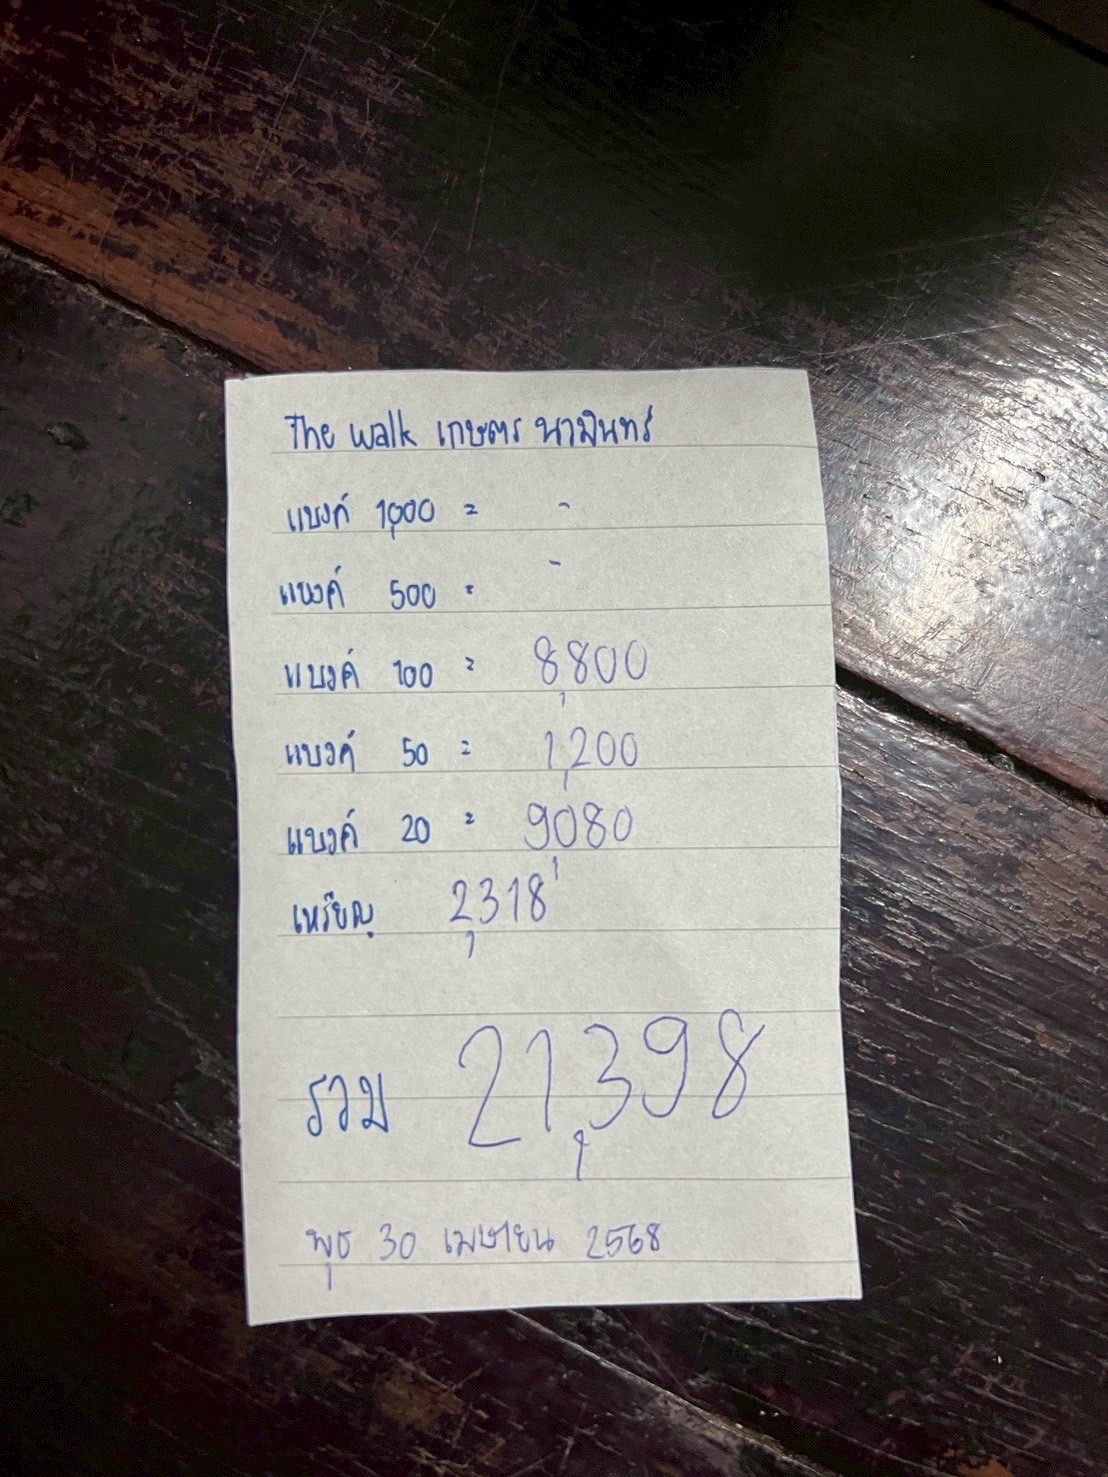 The walk เกษตร นวมินทร์
แบงค์ 1,000 = -
แบงค์ 500 = -
แบงค์ 100 = 8,800
แบงค์ 50 = 1,200
แบงค์ 20 = 9,080
เหรียญ 2,318
รวม 21,398
พุธ 30 เมษายน 2568